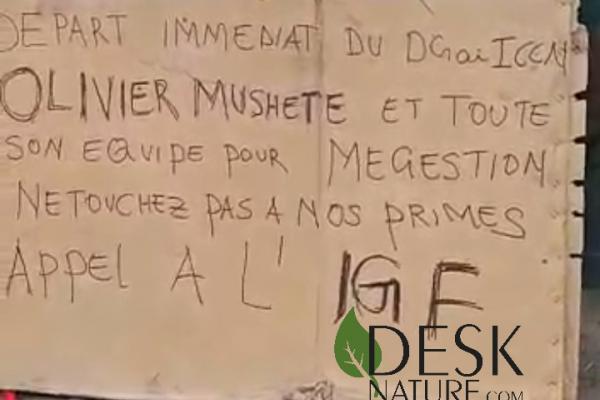 DEPART IMMEDIAT DU DGai ICCN
OLIVIER MUSHETE ET TOUTE
SON EQUIPE POUR MEGESTION
NETOUCHEZ PAS A NOS PRIMES
APPEL A L' IGF
DESK
NATURE.COM